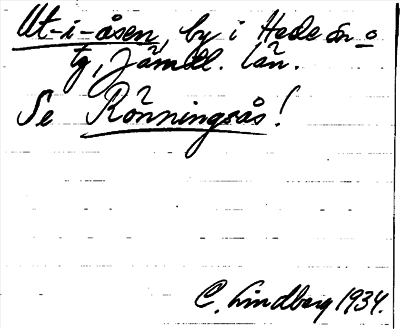 Ut-i-åsen, by i Hede sn o
tg, Jämtl. län.
Se Rönningsås!
C. Lindberg 1934.